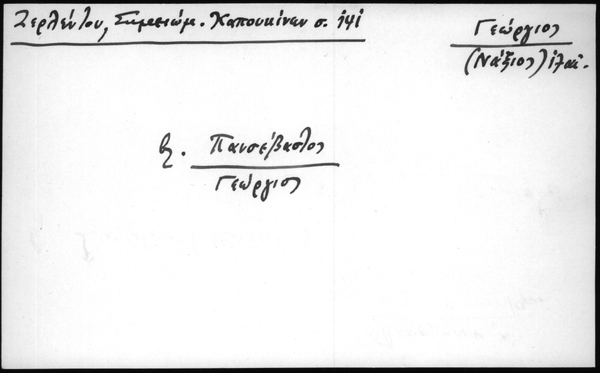 Ζερλέντου, Σημειώμ. Καπουκίνων σ.
Γεώργιος
(Νάξιος)
β. Πανσέβαστος
Γεώργιος